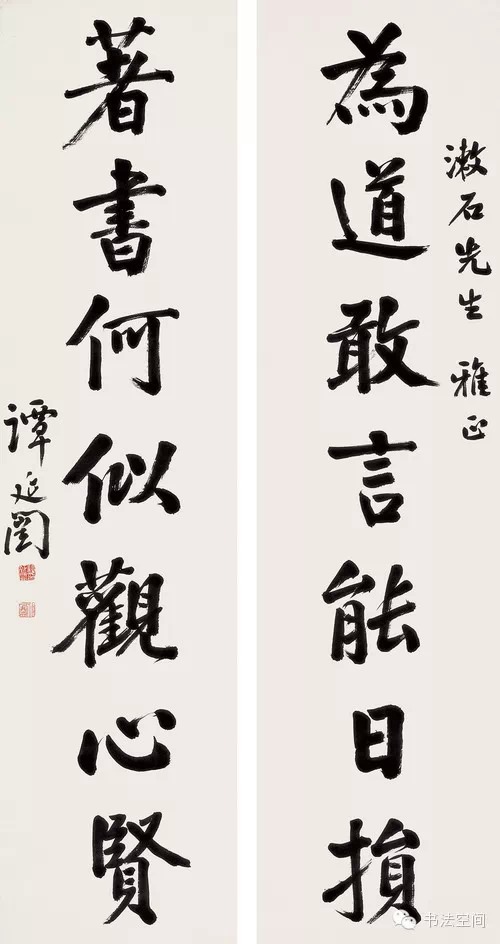 漱石先生 雅正
為道敢言能日損
著書何似觀心賢
譚延闓
书法空间